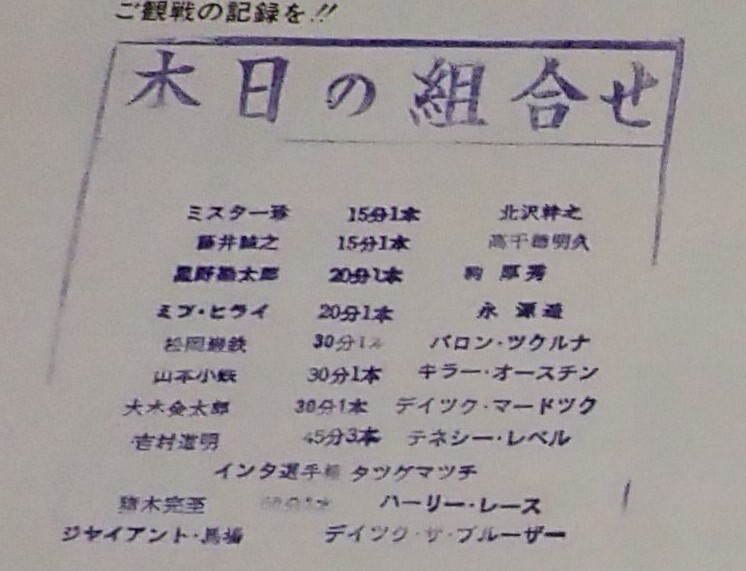 ご観戦の記録を!!
本日の組合せ
ミスター珍 15分1本 北沢幹之
藤井誠之 15分1本 高千穂明久
星野勘太郎 20分1本 駒 厚秀
ミツ・ヒライ 20分1本 永 源遥
松岡巌鉄 30分1本 バロン・ツクルナ
山本小鉄 30分1本 キラー・オースチン
大木金太郎 30分1本 デイツク・マードツク
吉村道明 45分3本 テネシー・レベル
インタ選手権 タツグマツチ
猪木完至 ハーリー・レース
ジヤイアント・馬場 デイツク・ザ・ブルーザー